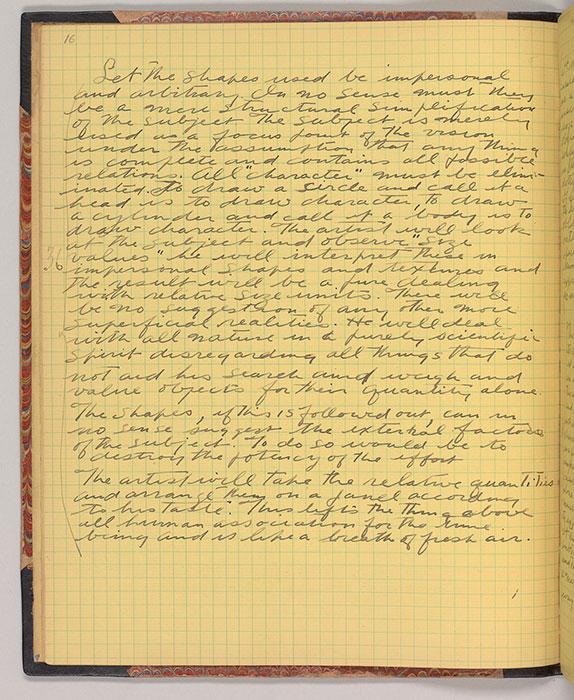 16
Let the shapes used be impersonal
and arbitrary. In no sense must they
be a mere structural simplification
of the subject. The subject is merely
used as a focus point of the vision
under the assumption that any thing
is complete and contains all possible
relations. All "character" must be elim-
inated. To draw a circle and call it a
head is to draw character, to draw
a cylinder and call it a body is to
draw character. The artist will look
at the subject and observe "size
values" he will interpret these in
impersonal shapes and textures and
the result will be a pure dealing
with relative size units. There will
be no suggestion of any other more
superficial realities. He will deal
with all nature in a purely scientific
spirit disregarding all things that do
not aid his search and weigh and
value objects for their quantity alone.
The shapes, if this is followed out, can in
no sense suggest the external factors
of the subject. To do so would be to
destroy the potency of the effort
The artist will take the relative quantities
and arrange them on a panel according
to his taste. This lifts the thing above
all human association for the time
being and is like a breath of fresh air.